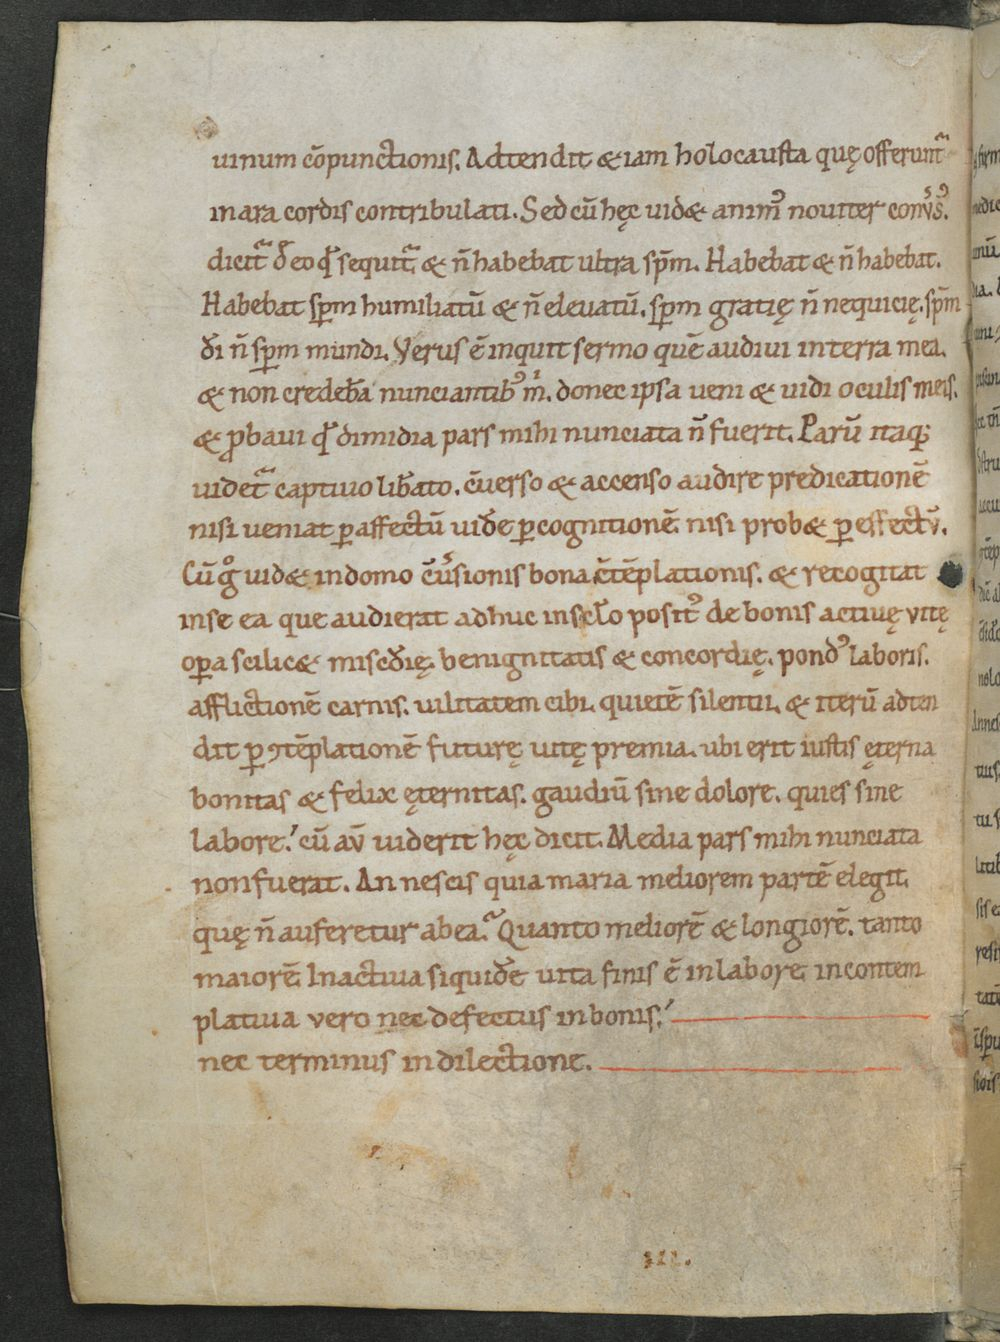 uinum cōpunctionis. Adtendit &iam holocausta quę offerunt᷑
in ara cordis contribulati. Sed cū hęc uid& animꝰ nouiter conúsꝰ.
dicit᷑ Deo qđ sequit᷑ & n̄ habebat ultra sp̄m. Habebat & n̄ habebat.
Habebat sp̄m humiliatū & n̄ eleuatū. sp̄m gratię n̄ nequicię. sp̄m
di n̄ sp̄m mundi. Verus ē inquit sermo quē audiui in terra mea.
& non credebā nunciantibꝰ m̍. donec ipsa ueni & uidi oculis meis.
& ꝓbaui qđ dimidia pars mihi nunciata n̄ fuerit. Parū itaq;
uidet᷑ captiuo liƀato. c̄uerso & accenso audire predicationē
nisi ueniat ꝑ affectū uiđe ꝑ cognitionē nisi prob& ꝑ effectū.
Cū gͦ uid& in domo c̄u̓sionis bona c̄tēplationis. & recogitat
in se ea que audierat adhuc in sclo positꝰ de bonis actiuę vitę
oꝑa scilic& misc̄dię. benignitatis & concordię. pondꝰ laboris.
afflictionē carnis. uilitatem cibi. quietē silentii. & iterū adten
dit ꝑ ꝯtēplationē futurę uitę premia. ubi erit iustis ęterna
bonitas & felix ęternitas. gaudiū sine dolore. quies sine
labore. cū aū uiderit hęc dicit. Media pars mihi nunciata
non fuerat. An nescis quia maria meliorem partē elegit.
quę n̄ auferetur ab ea. Quanto meliorē & longiorē. tanto
maiorē. In actiua siquiđe uita finis ē in labore in contem
platiua vero nec defectus in bonis.
nec terminus in dilectione.
III.